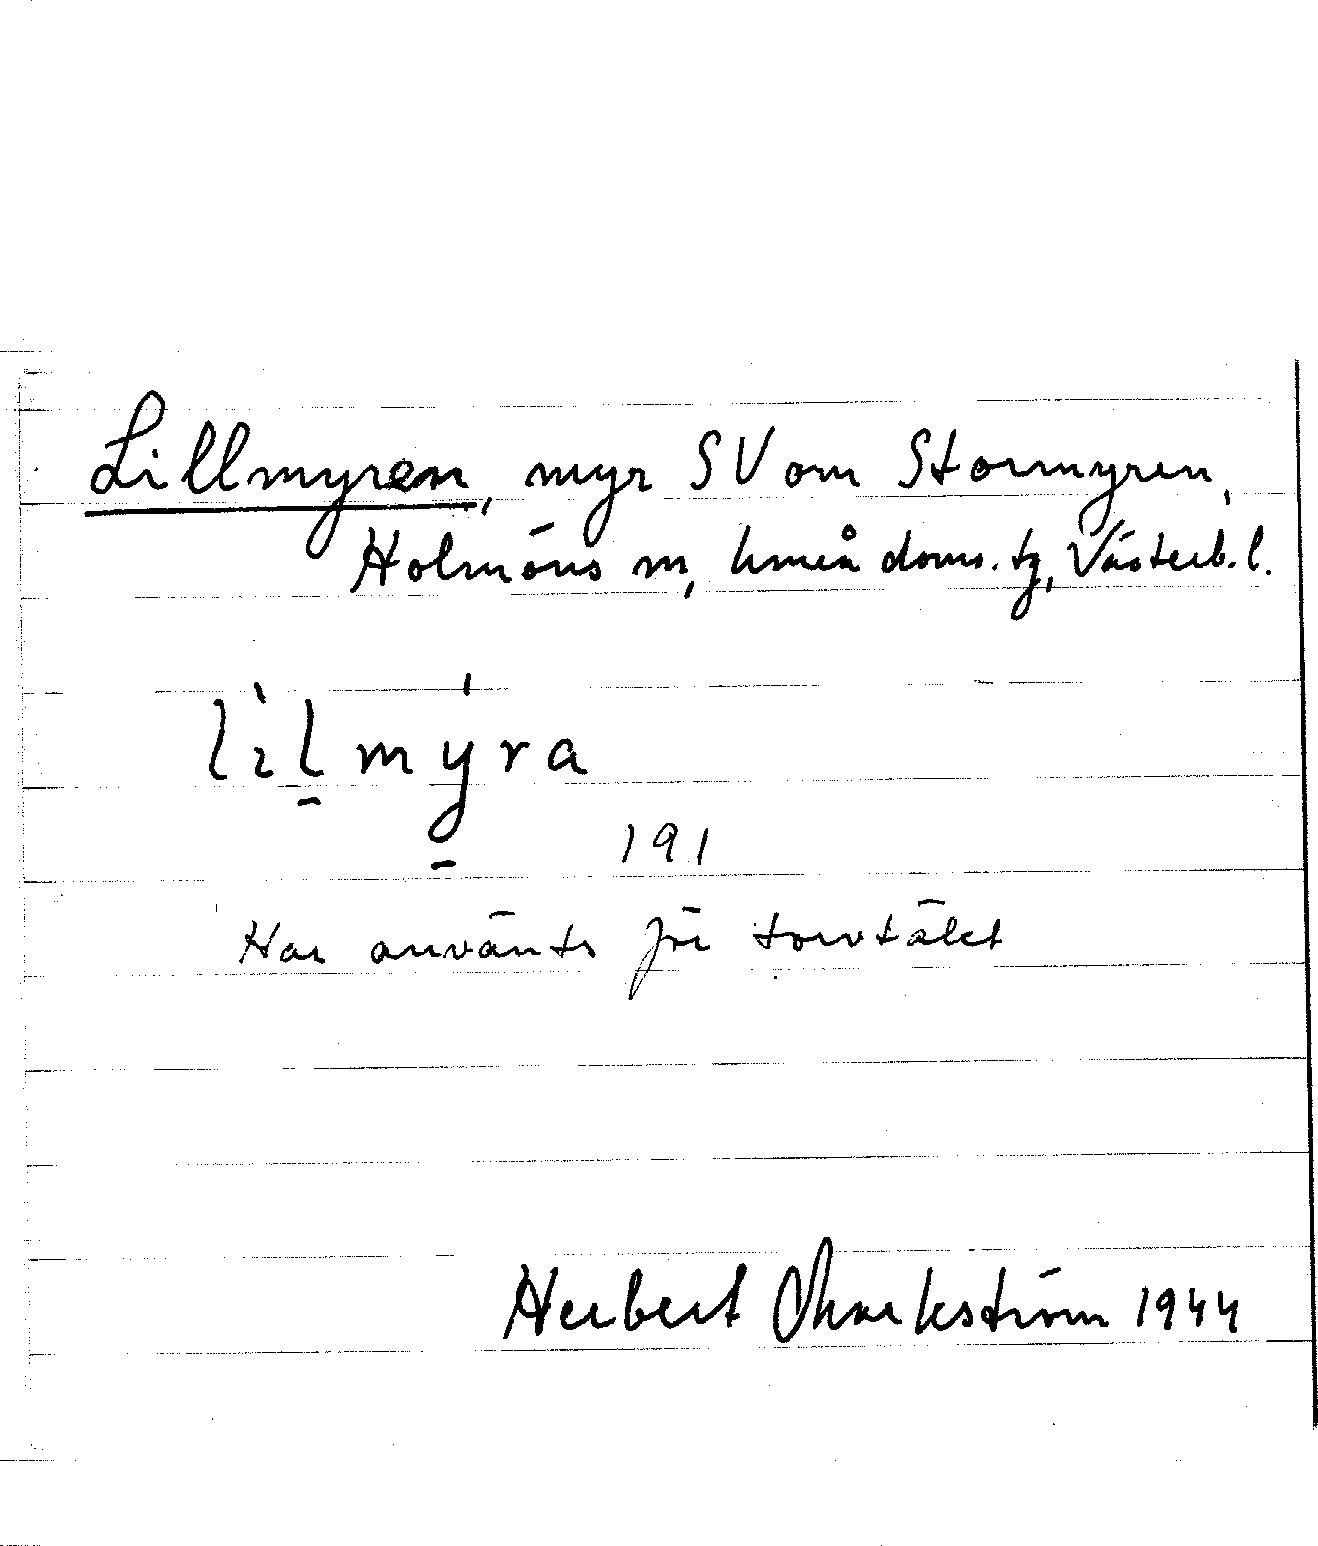 Lillmyren, myr SV om Stormyren,
Holmöns sn, Umeå doms. tg, Västerb. l.
lìl̠mý̠ra
191
Har använts för torvtäkt
Herbert Ohrarkström 1944